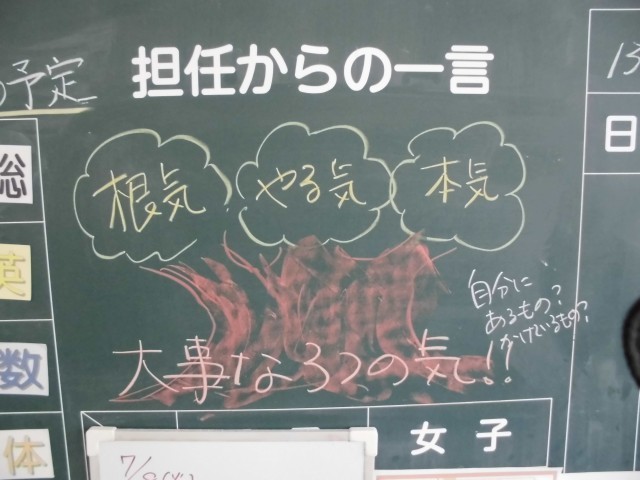 の予定
担任からの一言
13
日
総
英
数
体
根気
やる気
本気
自分に
あるもの?
かけているもの?
大事な3つの気!!
女子
7/